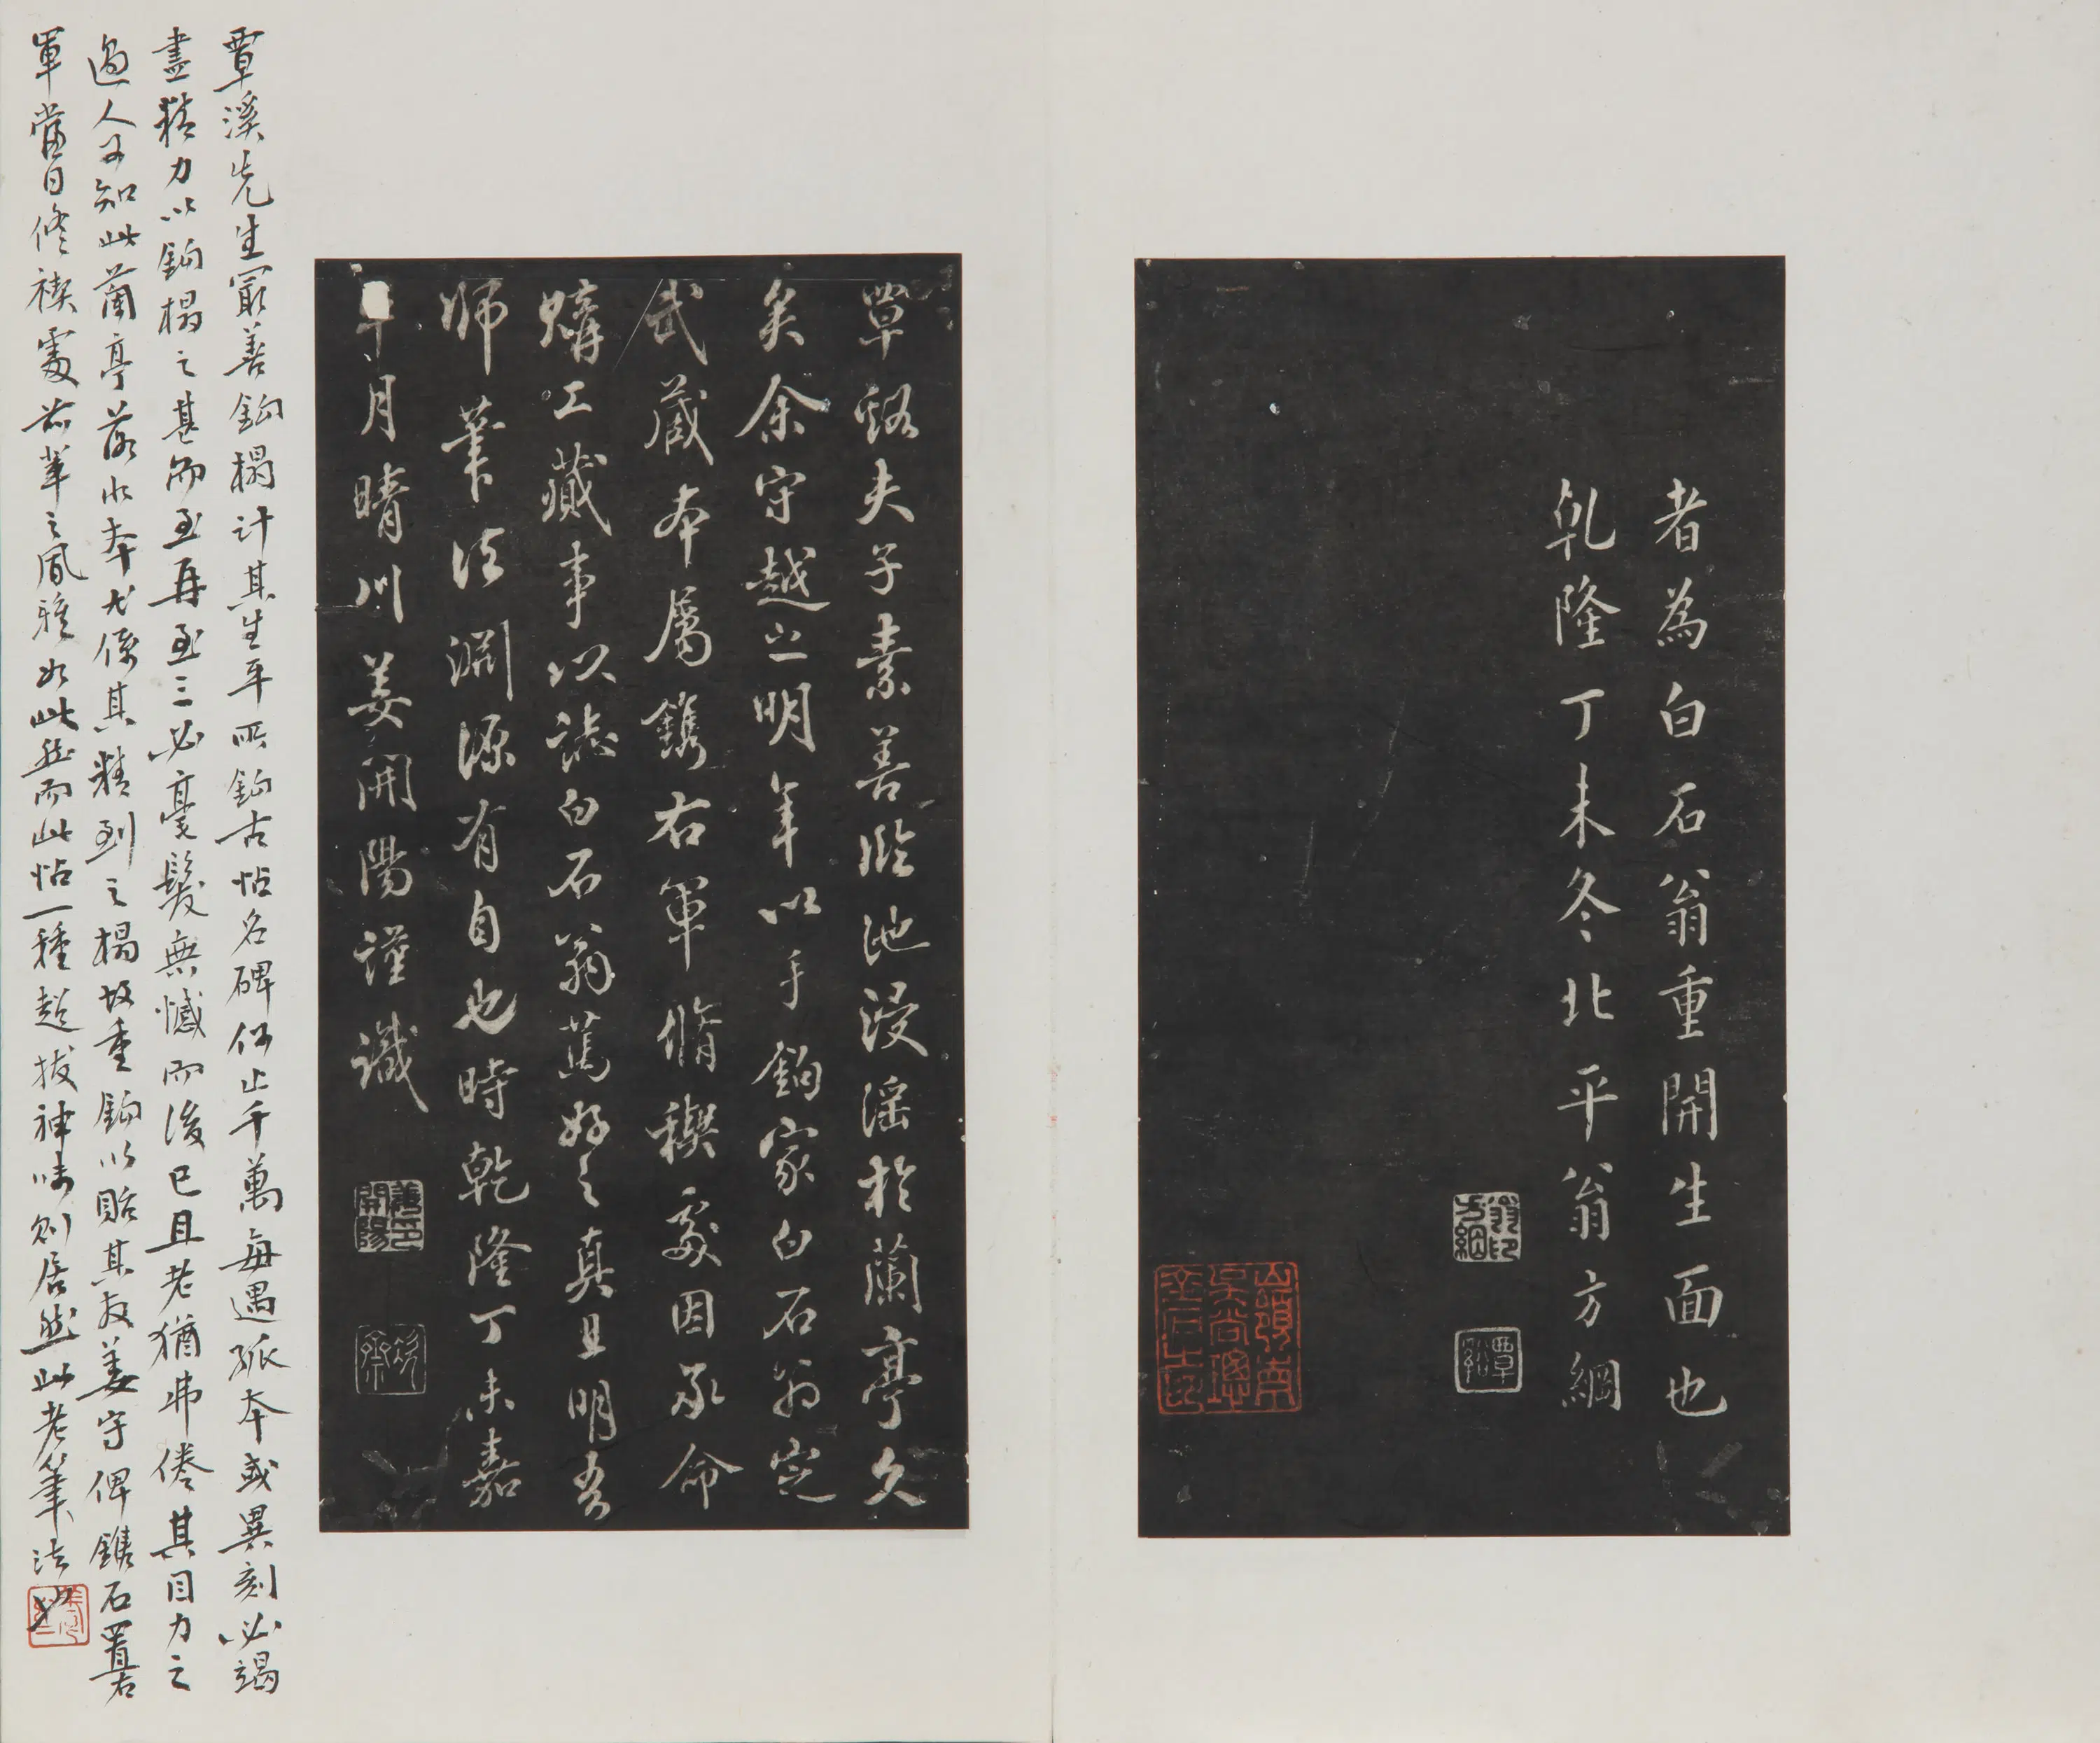 者為白石翁重開生面也
乹隆丁未冬北平翁方綱
翁方綱印
覃谿
覃谿夫子素善臨池浸淫於蘭亭久
矣余守越之明年以手鉤家白石翁定
武藏本屬鐫右軍脩稧處因承命
購工藏事以誌白石翁篤好之真且明吾
師筆法淵源有自也時乾隆丁未嘉
平月晴川姜開陽謹識
姜印開陽
覃溪先生最善鉤榻計其生平所鉤古帖名碑何止千萬每遇孤本或異刻必竭
盡精力以鉤榻之甚而至再至三必毫髮無憾而後已且老猶弗倦其目力之
過人可知此蘭亭落水本尤係其精到之榻故重鉤以貽其友姜守俾鐫石置右
軍當日修禊處前輩之風雅如此然而此帖一種超拔神味則居然此老筆法也